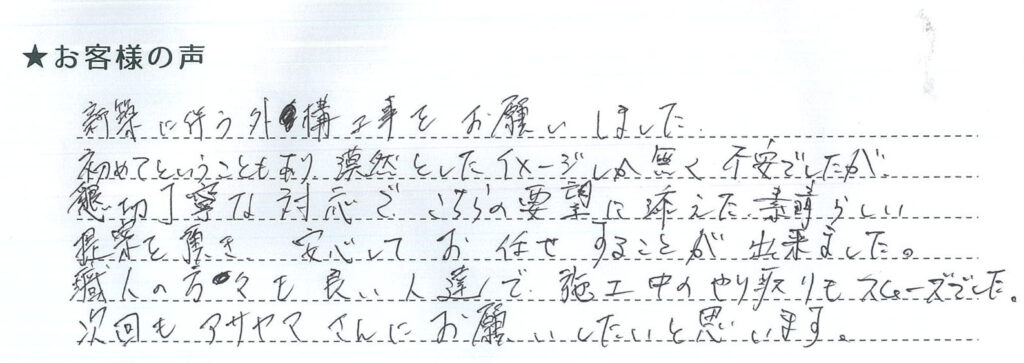 ★お客様の声
新築に伴う外構工事をお願いしました。
初めてということもあり、漠然としたイメージしか無く不安でしたが、
懇切丁寧な対応で、こちらの要望に添えた素晴らしい
提案を頂き、安心してお任せすることが出来ました。
職人の方々も良い人達で、施工中のやり取りもスムーズでした。
次回もアサヤマさんにお願いしたいと思います。